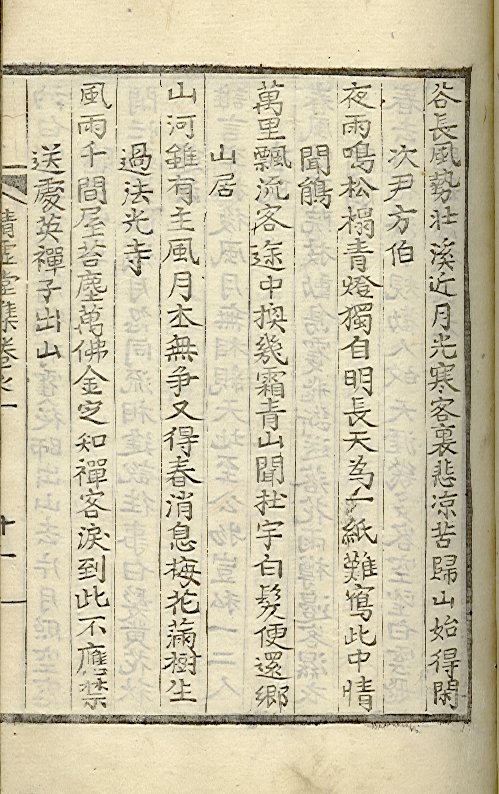 谷長風勢壯溪近月光寒客裏悲凉苦歸山始得閑
次尹方伯
夜雨鳴松榻青燈獨自明長天為一紙難寫此中情
聞鵑
萬里飄流客途中換幾霜青山聞杜宇白髮便還鄉
山居
山河雖有主風月本無爭又得春消息梅花滿樹生
過法光寺
風雨千間屋苔塵萬佛金定知禪客淚到此不應禁
送慶英禪子出山
清虛堂集卷之一
十一